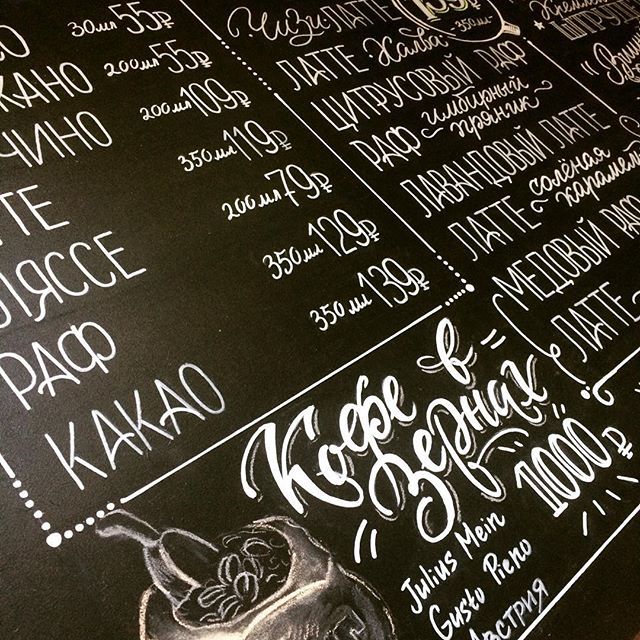 О 30мл 55₽
КАНО 200мл 55₽
ЧИНО 200мл 109₽
ТЕ 350мл 119₽
ЛЯССЕ 200мл 79₽
РАФ 350мл 129₽
КАКАО 350мл 139₽
Чизи ЛАТТЕ
350мл
ЛАТТЕ - Халва
ЦИТРУСОВЫЙ РАФ
РАФ - имбирный пряник
ЛАВАНДОВЫЙ ЛАТТЕ
ЛАТТЕ - солёная карамель
МЕДОВЫЙ РАФ
ЛАТТЕ
Кофе в
"Зернах"
1000₽
Julius Mein
Gusto Pieno
Австрия